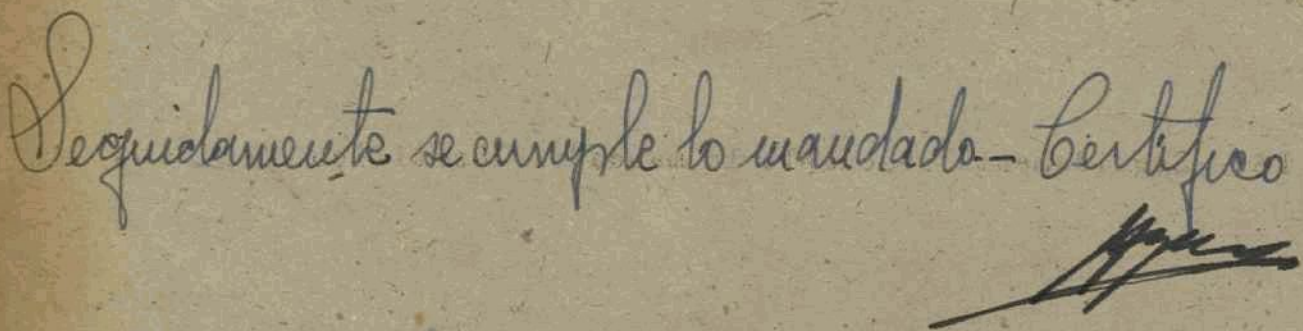 Seguidamente se cumple lo mandado - Certifico